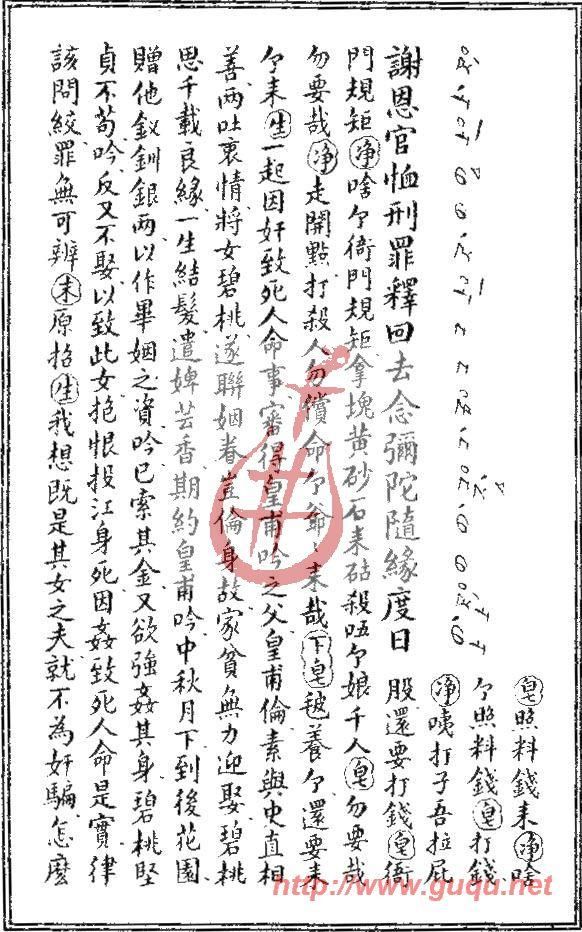 謝恩官恤刑罪釋回去念彌陀隨緣度日
皂照料錢来净啥
亇照料錢皂打錢
净咦打子吾拉屁
股還要打錢皂衙
門規矩净啥亇衙門規矩拿塊黄砂石来砧殺唔亇娘千人皂勿要哉
勿要哉净走開點打殺人勿償命亇爺〻来哉下皂毬養亇還要来
亇来生一起因奸致死人命事審得皇甫吟之父皇甫倫素與史直相
善兩吐衷情將女碧桃遂聯姻眷豈倫身故家貧無力迎娶碧桃
思千載良緣一生結髮遣婢芸香期約皇甫吟中秋月下到後花園
贈他釵釧銀兩以作畢姻之資吟已索其金又欲強姦其身碧桃堅
貞不苟吟反又不娶以致此女抱恨投江身死因姦致死人命是實律
該問絞罪無可辨末原招生我想既是其女之夫就不為奸騙怎麽
http://www.guqu.net